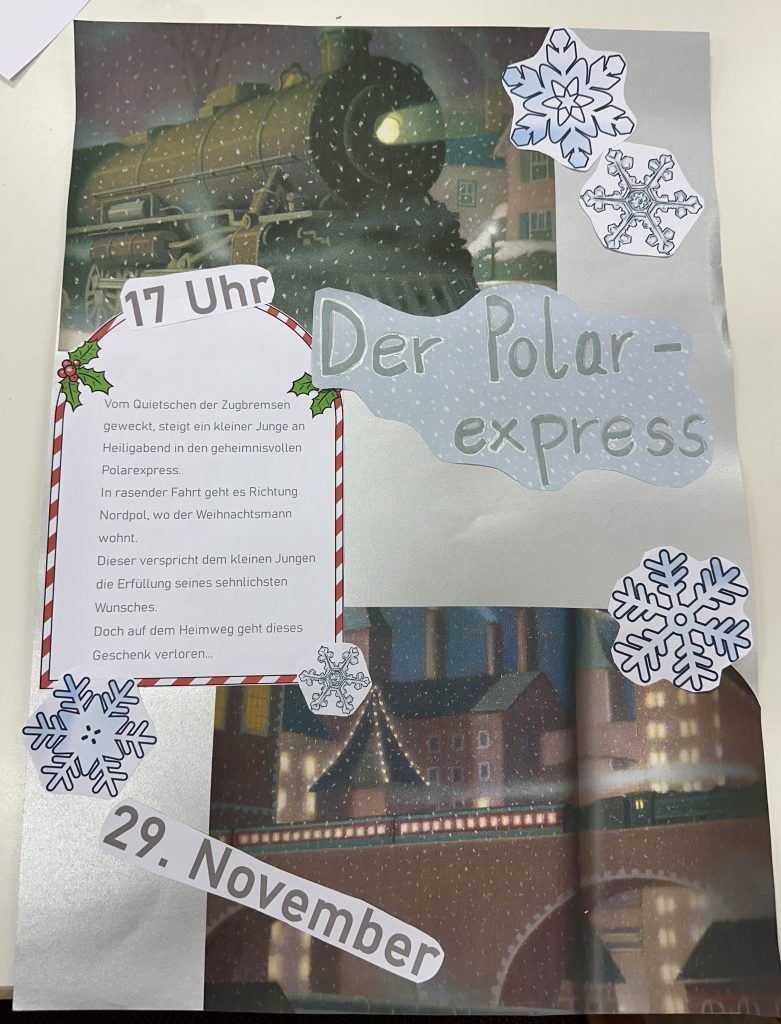 17 Uhr
Der Polar-
express
Vom Quietschen der Zugbremsen
geweckt, steigt ein kleiner Junge an
Heiligabend in den geheimnisvollen
Polarexpress.
In rasender Fahrt geht es Richtung
Nordpol, wo der Weihnachtsmann
wohnt.
Dieser verspricht dem kleinen Jungen
die Erfüllung seines sehnlichsten
Wunsches.
Doch auf dem Heimweg geht dieses
Geschenk verloren...
29. November